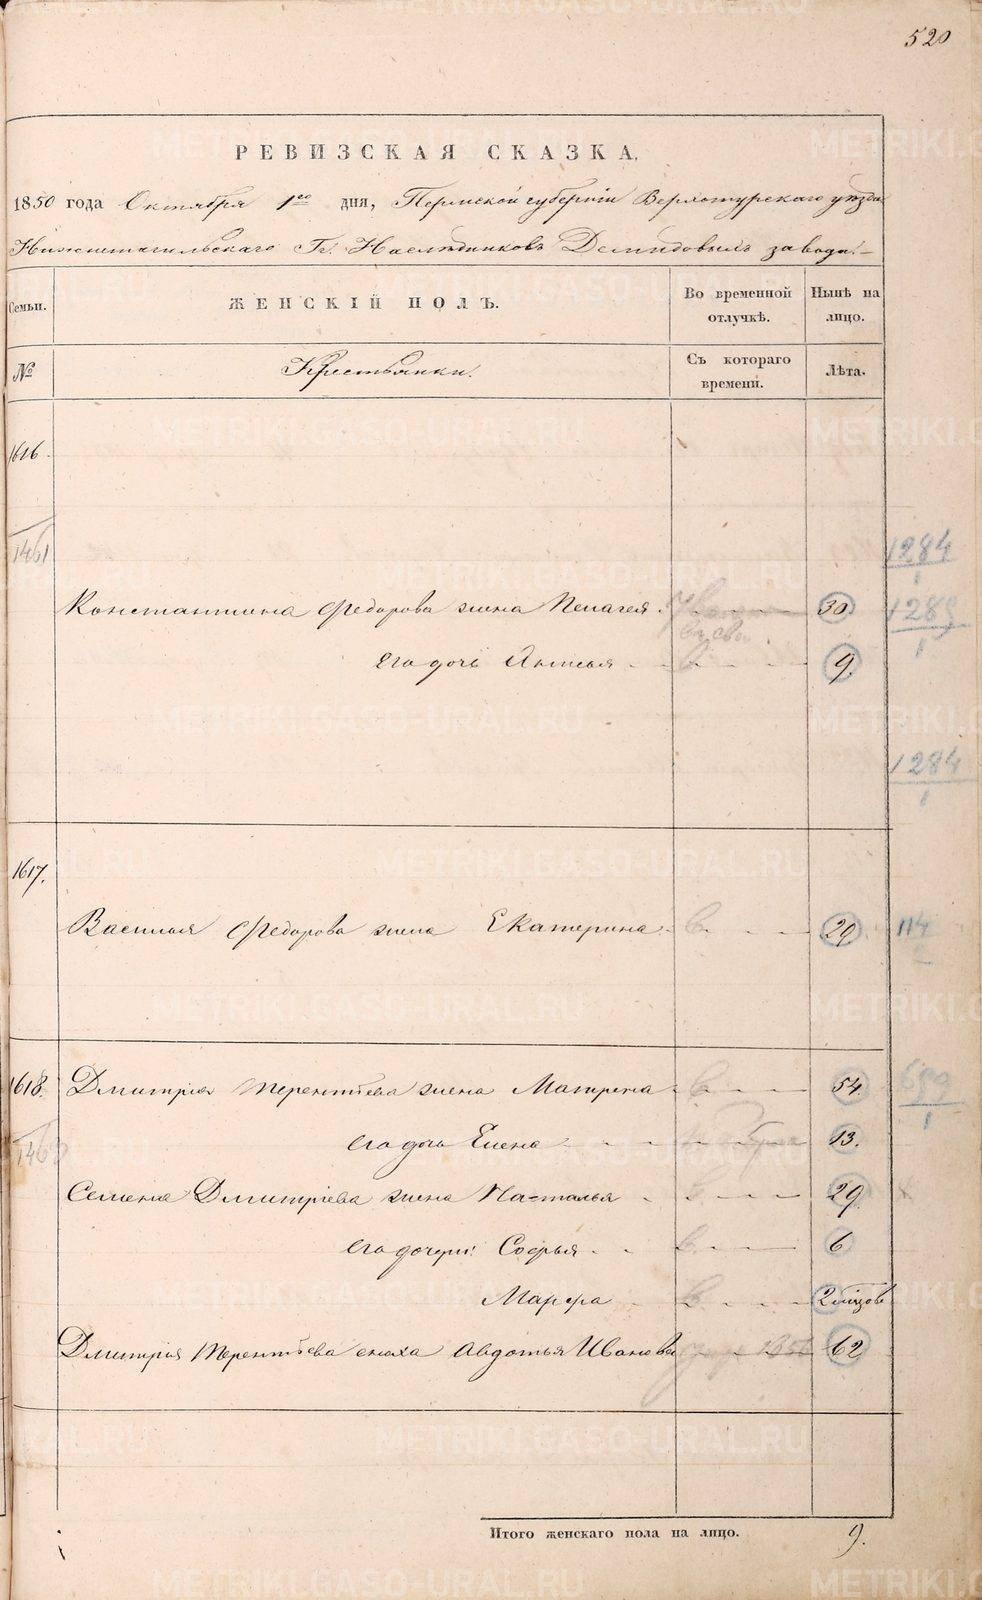 520
РЕВИЗСКАЯ СКАЗКА.
1850 года Октября 1го дня, Пермской губернiи Верхотурскаго уѣзда
Нижнетагильскаго Гг. Наслѣдниковъ Демидовыхъ завода.
Семьи. ЖЕНСКIЙ ПОЛЪ. Во временной отлучкѣ. Нынѣ на лицо.
№ Крестьянки. Съ котораго времени. Лѣта.
1616.
1461 1284
1
Константина Федорова жена Пелагея 30. 1289
1
его дочь 9.
1284
1
1617.
Василья Федорова жена Екатерина в 29 114
1618. Дмитрiя Терентьева жена Матрена в 54. 659
1
его дочь Елена 13.
Семена Дмитрiева жена Наталья в 29.
его дочери: Софья в 6
Марфа в 2 мѣсяцов
Дмитрiя Терентьева сноха Авдотья Иванова 1850 62
Итого женскаго пола на лицо. 9.
METRIKI.GASO-URAL.RU